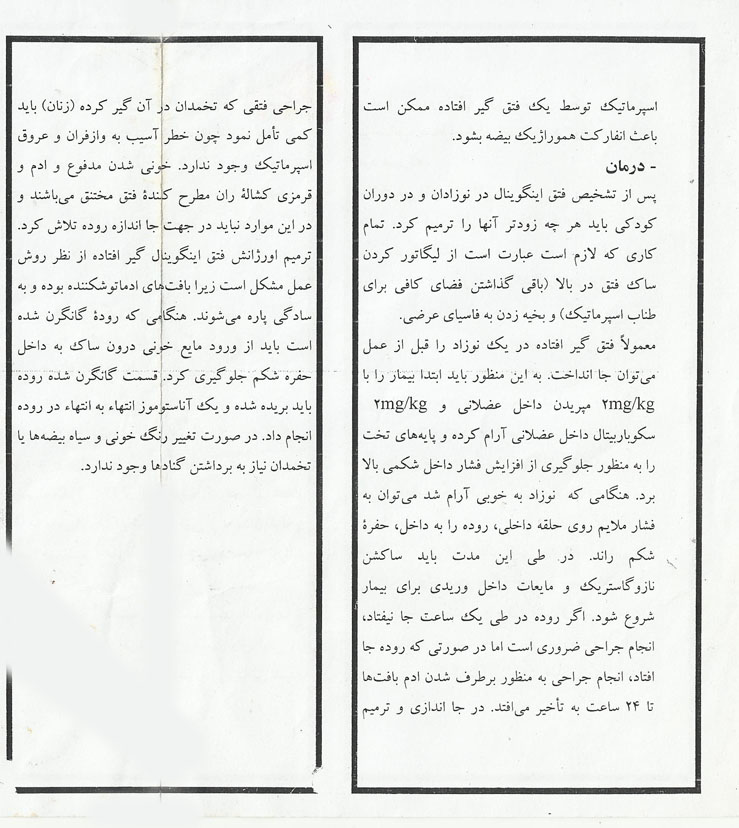 اسپرماتیک توسط یک فتق گیر افتاده ممکن است
باعث انفارکت هموراژیک بیضه بشود.
- درمان
پس از تشخیص فتق اینگوینال در نوزادان و در دوران
کودکی باید هر چه زودتر آنها را ترمیم کرد. تمام
کاری که لازم است عبارت است از لیگاتور کردن
ساک فتق در بالا (باقی گذاشتن فضای کافی برای
طناب اسپرماتیک) و بخیه زدن به فاسیای عرضی.
معمولاً فتق گیر افتاده در یک نوزاد را قبل از عمل
می‌توان جا انداخت. به این منظور باید ابتدا بیمار را با
۲mg/kg مپریدن داخل عضلانی و ۲mg/kg
سکوباربیتال داخل عضلانی آرام کرده و پایه‌های تخت
را به منظور جلوگیری از افزایش فشار داخل شکمی بالا
برد. هنگامی که نوزاد به خوبی آرام شد می‌توان به
فشار ملایم روی حلقه داخلی، روده را به داخل، حفرهٔ
شکم راند. در طی این مدت باید ساکشن
نازوگاستریک و مایعات داخل وریدی برای بیمار
شروع شود. اگر روده در طی یک ساعت جا نیفتاد،
انجام جراحی ضروری است اما در صورتی که روده جا
افتاد، انجام جراحی به منظور برطرف شدن ادم بافت‌ها
تا ۲۴ ساعت به تأخیر می‌افتد. در جا اندازی و ترمیم
جراحی فتقی که تخمدان در آن گیر کرده (زنان) باید
کمی تأمل نمود چون خطر آسیب به وازفران و عروق
اسپرماتیک وجود ندارد. خونی شدن مدفوع و ادم و
قرمزی کشالهٔ ران مطرح کنندهٔ فتق مختنق می‌باشند و
در این موارد نباید در جهت جا اندازه روده تلاش کرد.
ترمیم اورژانش فتق اینگوینال گیر افتاده از نظر روش
عمل مشکل است زیرا بافت‌های ادماتوشکننده بوده و به
سادگی پاره می‌شوند. هنگامی که رودهٔ گانگرن شده
است باید از ورود مایع خونی درون ساک به داخل
حفره شکم جلوگیری کرد. قسمت گانگرن شده روده
باید بریده شده و یک آناستوموز انتهاء به انتهاء در روده
انجام داد. در صورت تغییر رنگ خونی و سیاه بیضه‌ها یا
تخمدان نیاز به برداشتن گنادها وجود ندارد.